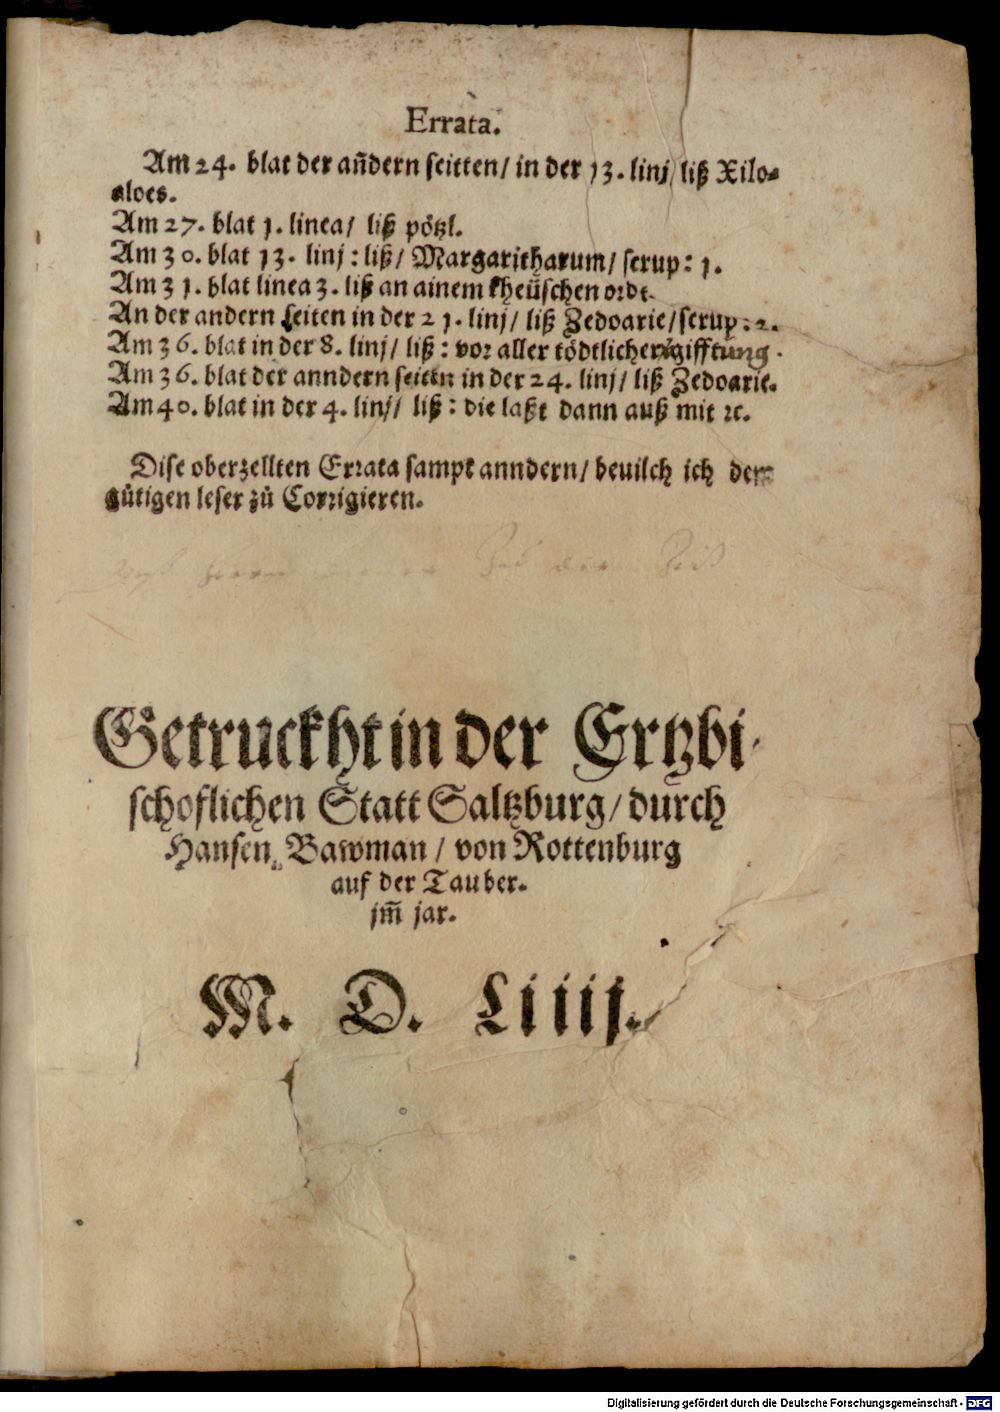 Errata.
Am 24. blat der añdern seitten/ in der 13. linj/ liß Xilo⸗
aloes.
Am 27. blat 1. linea/ liß pötzl.
Am 30. blat 13. linj: liß/ Margaritharum/ scrup: 1.
Am 31. blat linea 3. liß an ainem kheüschen ordt.
An der andern seiten in der 21. linj/ liß Zedoarie/ scrup: 2.
Am 36. blat in der 8. linj/ liß: vor aller tödtlicher
Am 36. blat der anndern seiten in der 24. linj/ liß Zedoarie.
Am 40. blat in der 4. linj/ liß: die laßt dann auß mit ꝛc.
Dise oberzellten Errata sampt anndern/ beuilch ich dem
gütigen leser zů Corrigieren.
Getruckht in der Ertzbi⸗
schoflichen Statt Saltzburg/ durch
Hansen Bawman/ von Rottenburg
auf der Tauber.
jm̃ jar.
M. D. Liiij.
Digitalisierung gefördert durch die Deutsche Forschungsgemeinschaft - DFG